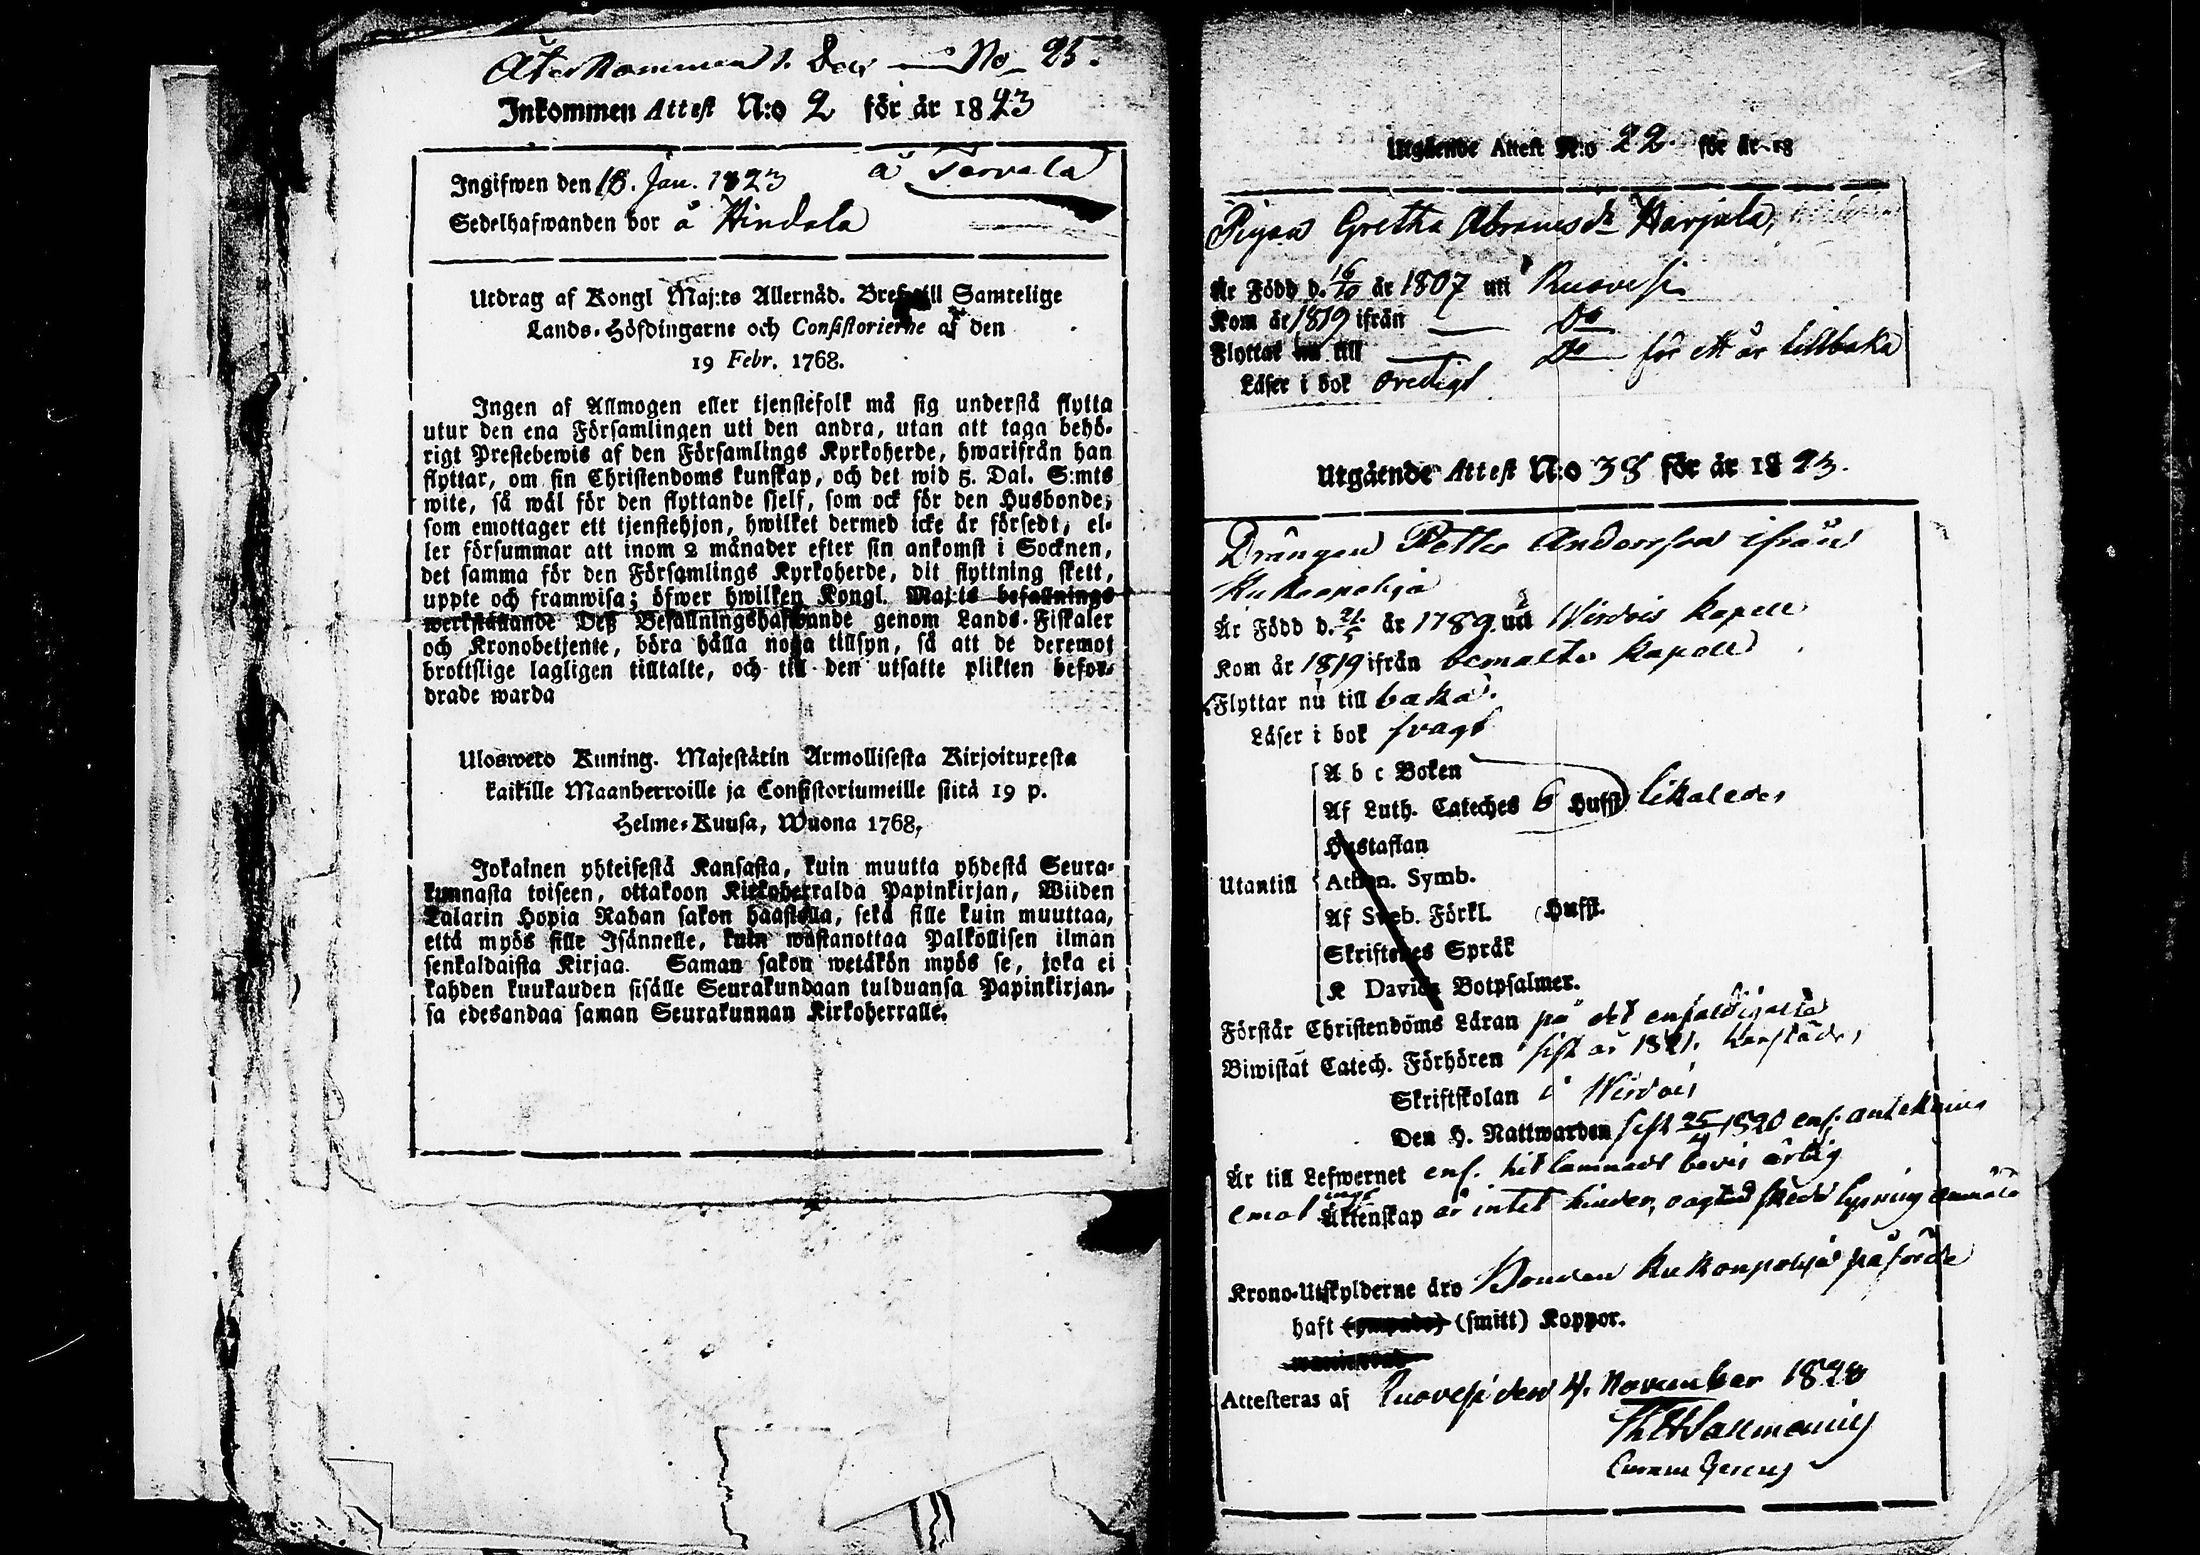 Återkommen 1. Dec — No 25.
Inkommen Attest N:o 2 för år 1823
Ingifwen den 18. Jan. 1823 å Torvela
Sedelhafwanden bor å Hindala
Utdrag af Kongl Maj:ts Allernåd. Bref till Samtelige
Lands-Höfdingarne och Consistorierne af den
19 Febr. 1768.
Ingen af Allmogen eller tjenstefolk må sig understå flytta
utur den ena Församlingen uti den andra, utan att taga behö-
rigt Prestebewis af den Församlings Kyrkoherde, hwarifrån han
flyttar, om sin Christendoms kunskap, och det wid 5. Dal. S:mts
wite, så wäl för den flyttande sjelf, som ock för den Husbonde,
som emottager ett tjenstehjon, hwilket dermed icke är försedt, el-
ler försummar att inom 2 månader efter sin ankomst i Socknen,
det samma för den Församlings Kyrkoherde, dit flyttning skett,
uppte och framwisa; öfwer hwilken Kongl. Maj:ts befallnings
werkställande Deß Befallningshafwande genom Lands-Fiskaler
och Kronobetjente, böra hålla noga tillsyn, så att de deremot
brottslige lagligen tilltalte, och till den utsatte plikten befor-
drade warda
Ulosweto Kuning. Majestätin Armollisesta Kirjoituxesta
kaikille Maanherroille ja Consistoriumeille siitä 19 p.
Helme-Kuusa, Wuona 1768,
Jokainen yhteisestä Kansasta, kuin muutta yhdestä Seura-
kunnasta toiseen, ottakoon Kirkoherralda Papinkirjan, Wiiden
Talarin Hopia Rahan sakon haastolla, sekä sille kuin muuttaa,
että myös sille Isännelle, kuin wastanottaa Palkollisen ilman
senkaldaista Kirjaa. Saman sakon wetäkön myös se, joka ei
kahden kuukauden sisälle Seurakundaan tulduansa Papinkirjan-
sa edesandaa saman Seurakunnan Kirkoherralle.
Utgående Attest N:o 22. för år 18
Pigan Gretha Abramsdr Harjula,
Är Född d. 16/10 år 1807 uti Ruovesi
Kom år 1819 ifrån — Do
Flyttar nu till — Do för ett år tillbaka
Läser i bok oredigt
Utgående Attest N:o 38 för år 1823.
Drängen Petter Andersson ifrån
Kukonpohja
Är Född d. 21/5 år 1789 uti Wirdois kapell
Kom år 1819 ifrån bemalte kapell
Flyttar nu till baka.
Läser i bok svagt
A b c Boken
Af Luth. Cateches 6 Hufst likaledes
Hustaflan
Utantill Athan. Symb.
Af Sveb. Förkl. Hufst.
Skriftenes Språk
K Davids Botpsalmer.
Förstår Christendöms Läran på det enfaldigaste
Biwistat Catech. Förhören sist år 1821. härstädes
Skriftskolan i Wirdois
Den H. Nattwarden sist 25/4 1820 enl. anteckning
Är till Lefwernet enl. hit lämnadt bevis ärlig
emot ingå Äktenskap är intet hinder, lysning
Krono-Utskylderne äro Bonden Kukonpohja påförde
haft (smitt) Koppor.
Attesteras af Ruovesi den 4. November 1823